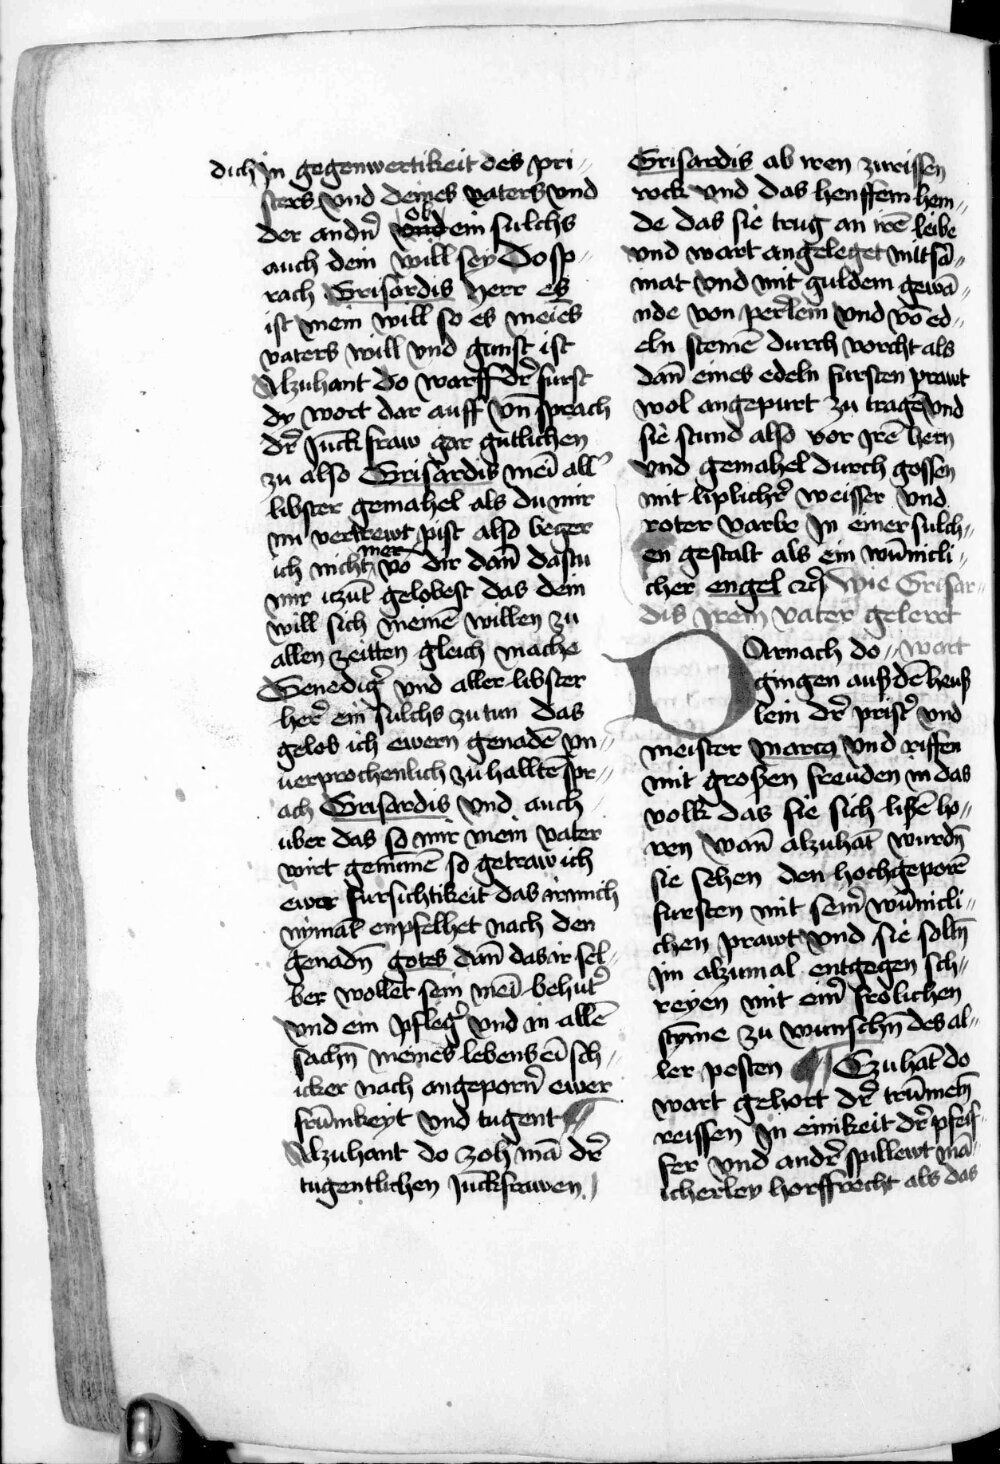 dich in gegenwertikeit des pri„
sters vnd deines vaters vnd
der andn̄ ob ein sulchs
auch dein will sey Do sp„
rach Grisardis Herr es
ist mein will so es meīes
vaters will vnd gunst ist
Alzuhant do warff dr̄ furst
dy wort dar auff vn̄ sprach
dr̄ Junckfraw gar gutlichen
zu also Grisardis meī all̄
libster gemahel als du mir
nu vertrewt pist also beger
ich nicht mer vō dir dan̄ dastu
mir iczūt gelobest das dein
will sich meinē willen zu
allen zeitten gleich mache
Genedigr̄ vnd aller libster
her̄ ein sulchs zu tun das
gelob ich ewern genadē vn„
uerprochenlich zu halltē spr„
ach Grisardis vnd auch
uber das so mir mein vater
wirt genūmē so getraw ich
ewer fursichtikeit das ir mich
nymāt enpfelhet nach den
genadn̄ gotes dan̄ das ir sel„
ber wollet sein meī behutr̄
vnd ein pflegr̄ vnd in allē
sachn̄ meines lebens eī sch„
icker nach angeporn̄ ewer
frūmkeyt vnd tugent ¶
Alzuhant do zoh mā dr̄
tugentlichen Junckfrawen
Grisardis ab iren zurissen
rock vnd das henffem hem„
de das sie trug an irē leibe
vnd wart angeleget mit sā„
mat vnd mit guldem gewā„
nde von perlein vnd vō ed„
eln steinē durch vorcht als
dan̄ eines edeln fursten prawt
wol angepurt zu tragē vnd
sie stund also vor irē hern
vnd gemahel durch gossen
mit liplichr̄ weisser vnd
roter varbe In einer sulch„
en gestalt als ein wūnicli„
cher engel etc̄ Wie Grisar„
dis irem vater geleret
Darnach do „ wart
gingen auß dē heuß
lein dr̄ pristr̄ vnd
meister marco vnd riffen
mit großen freuden in das
volk das sie sich lißē ho„
ren Wan̄ alzuhāt wurdn̄
sie sehen den hochgeporē
fursten mit seinr̄ wūnicli„
chen prawt vnd sie soltn̄
im alzumal entgegen sch„
reyen mit einr̄ frolichen
stȳme zu wunschn̄ des al„
ler pesten ¶ Czuhāt do
wart gehort dr̄ trūmetn̄
reissen In einikeit dr̄ pfeif„
fer vnd andr̄ spillewt mā„
icherley horffrecht als das